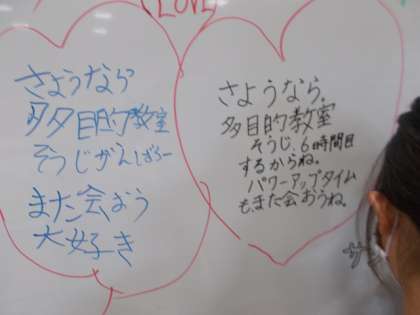 (LOVE)
さようなら
多目的教室
そうじがんばろー
また会おう
大好き
さようなら。
多目的教室
そうじ、6時間目
するからね。
パワーアップタイム
も、また会おうね。
サ